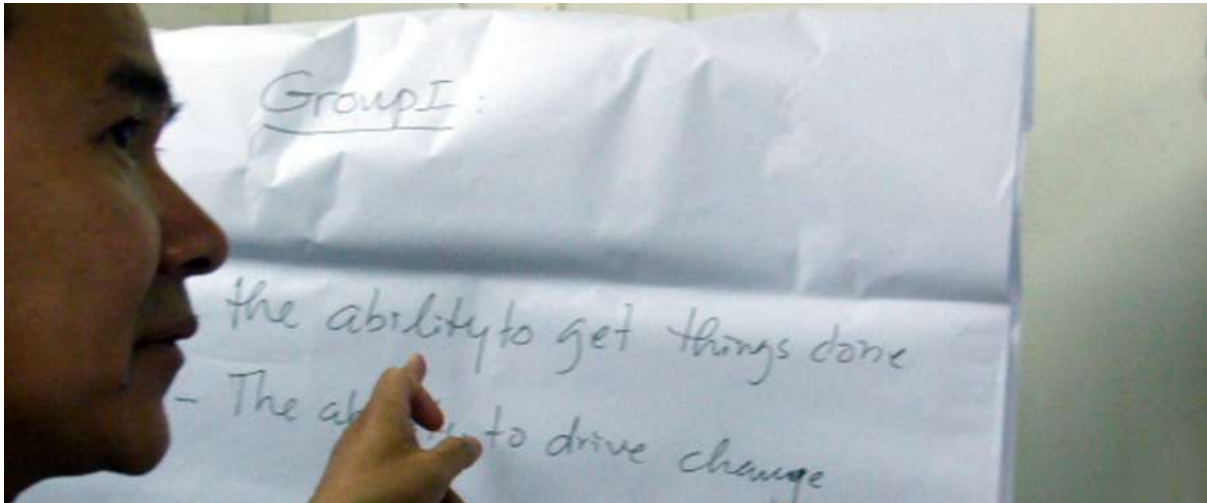 Group I :
the ability to get things done
- The ability to drive change